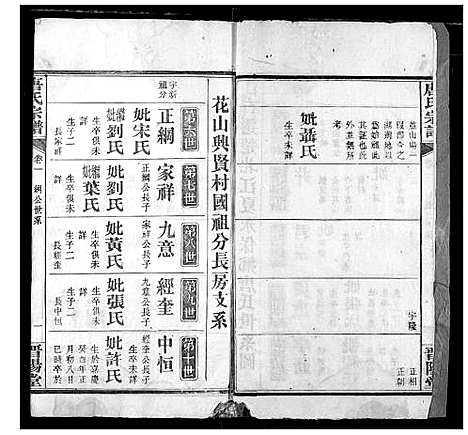 唐氏宗譜
妣聶氏
考
外並無別
其証也此
湖湘地取
正相
正朝
晉陽堂
花山興賢村國祖分長房支系
第六世
第七世
第八世
第九世
第十世
正綱
妣宋氏
繼妣劉氏
生卒俱未
詳
生子一
長家祥
家祥
正綱公長子
妣劉氏
繼妣葉氏
生卒俱未
詳
生子二
九意
家祥公長子
妣黃氏
生卒俱未
詳
生子一
長經奎
經奎
九意公長子
妣張氏
生卒俱未
詳
生子一
長中恒
中恒
經奎公長子
妣許氏
生於嘉慶
癸酉年正
月初八日
巳時卒於
唐氏宗譜
卷一
綱公世系
一
晉陽堂